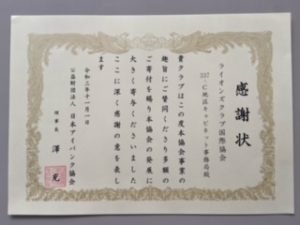 感謝状
ライオンズクラブ国際協会
337-C地区キャビネット事務局殿
貴クラブはこの度本協会事業の
趣旨にご賛同くださり多額の
ご寄付を賜り本協会の発展に
大きく寄与くださいました
ここに深く感謝の意を表し
ます
令和三年十一月一日
公益財団法人 日本アイバンク協会
理事長 澤 充